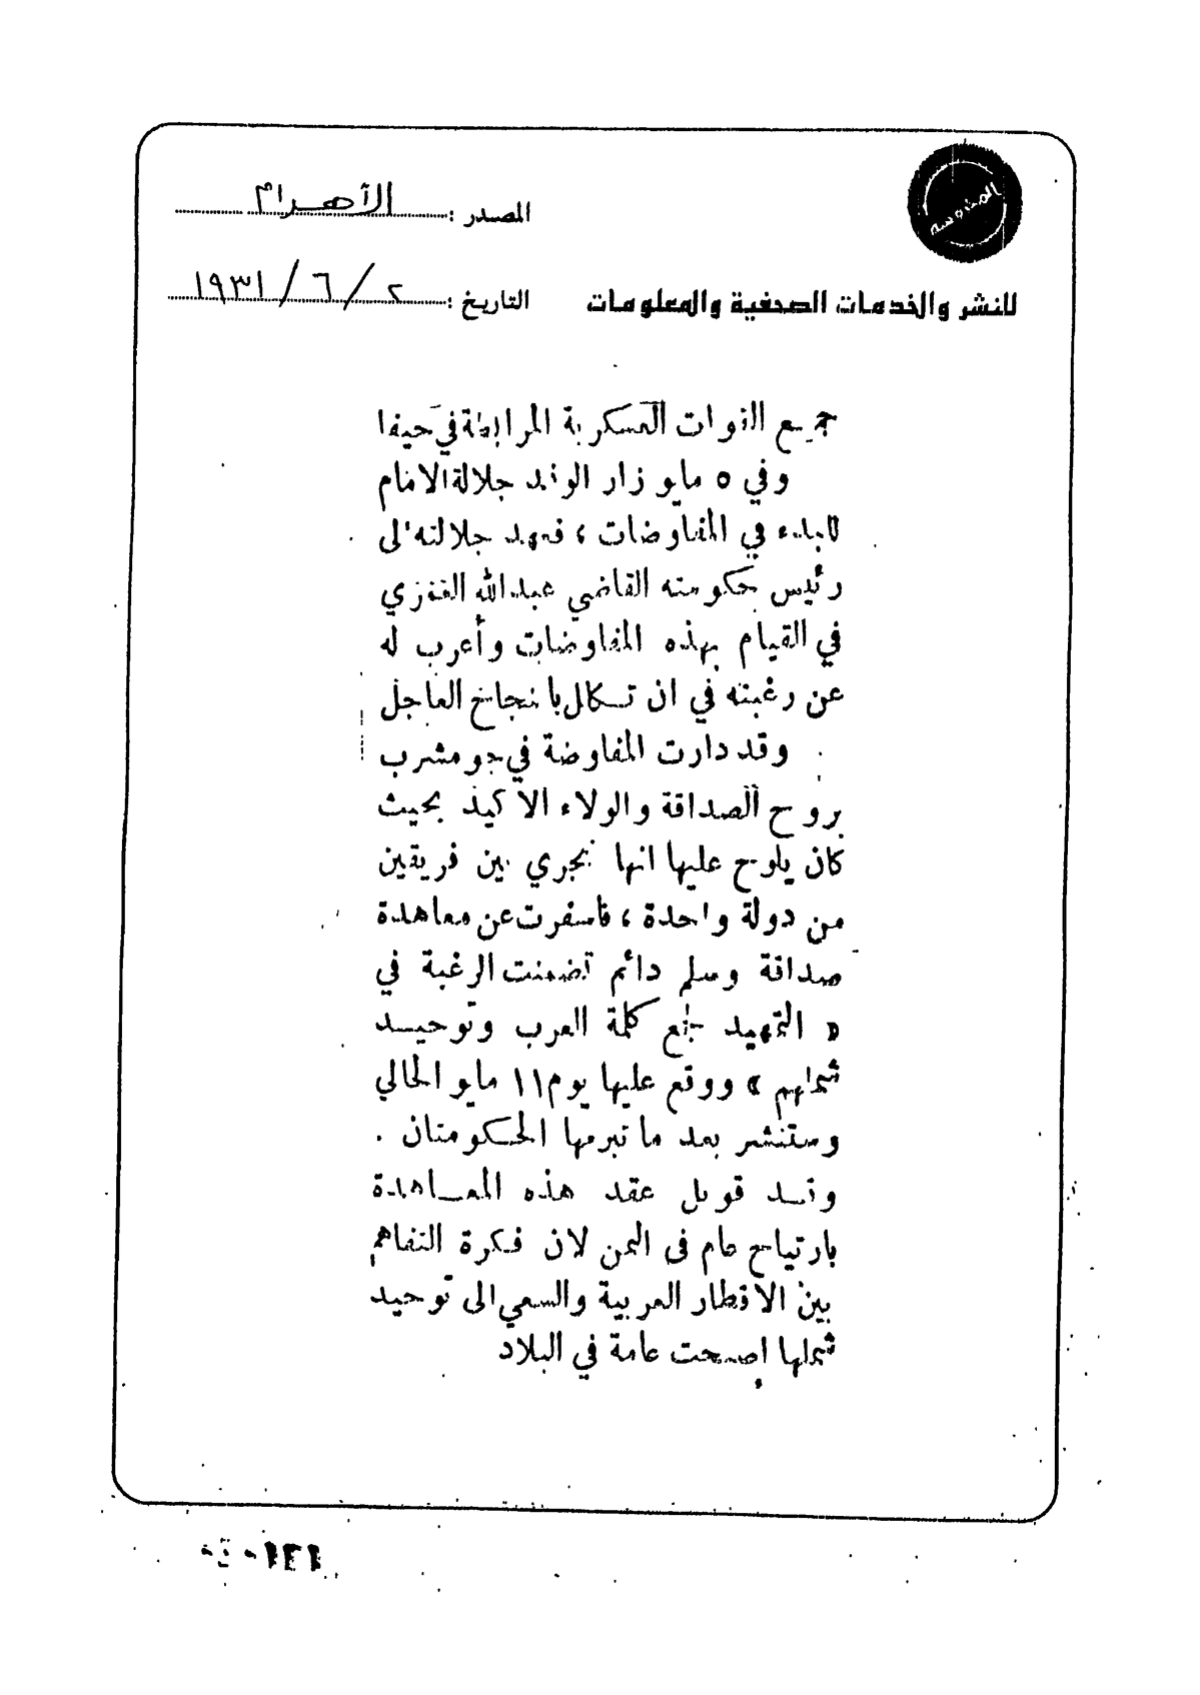 المحروسة
المصدر : الأهرام
للنشر والخدمات الصحفية والمعلومات
التاريخ : ٢ / ٦ / ١٩٣١
جميع القوات العسكرية المرابطة في حيفا
وفي ٥ مايو زار الوفد جلالة الامام
للبدء في المفاوضات ، فعهد جلالته الى
رئيس حكومته القاضي عبد الله
في القيام بهذه المفاوضات وأعرب له
عن رغبته في ان تكلل بالنجاح العاجل
وقد دارت المفاوضة في جو مشرب
بروح الصداقة والولاء الاكيد بحيث
كان يلوح عليها انها تجري بين فريقين
من دولة واحدة ، فأسفرت عن معاهدة
صداقة وسلم دائم تضمنت الرغبة في
« التمهيد لجمع كلمة العرب وتوحيد
شملهم » ووقع عليها يوم ١١ مايو الحالي
وستنشر بعد ما تبرمها الحكومتان .
وقد قوبل عقد هذه المعاهدة
بارتياح عام في اليمن لان فكرة التفاهم
بين الاقطار العربية والسعي الى توحيد
شملها اصبحت عامة في البلاد